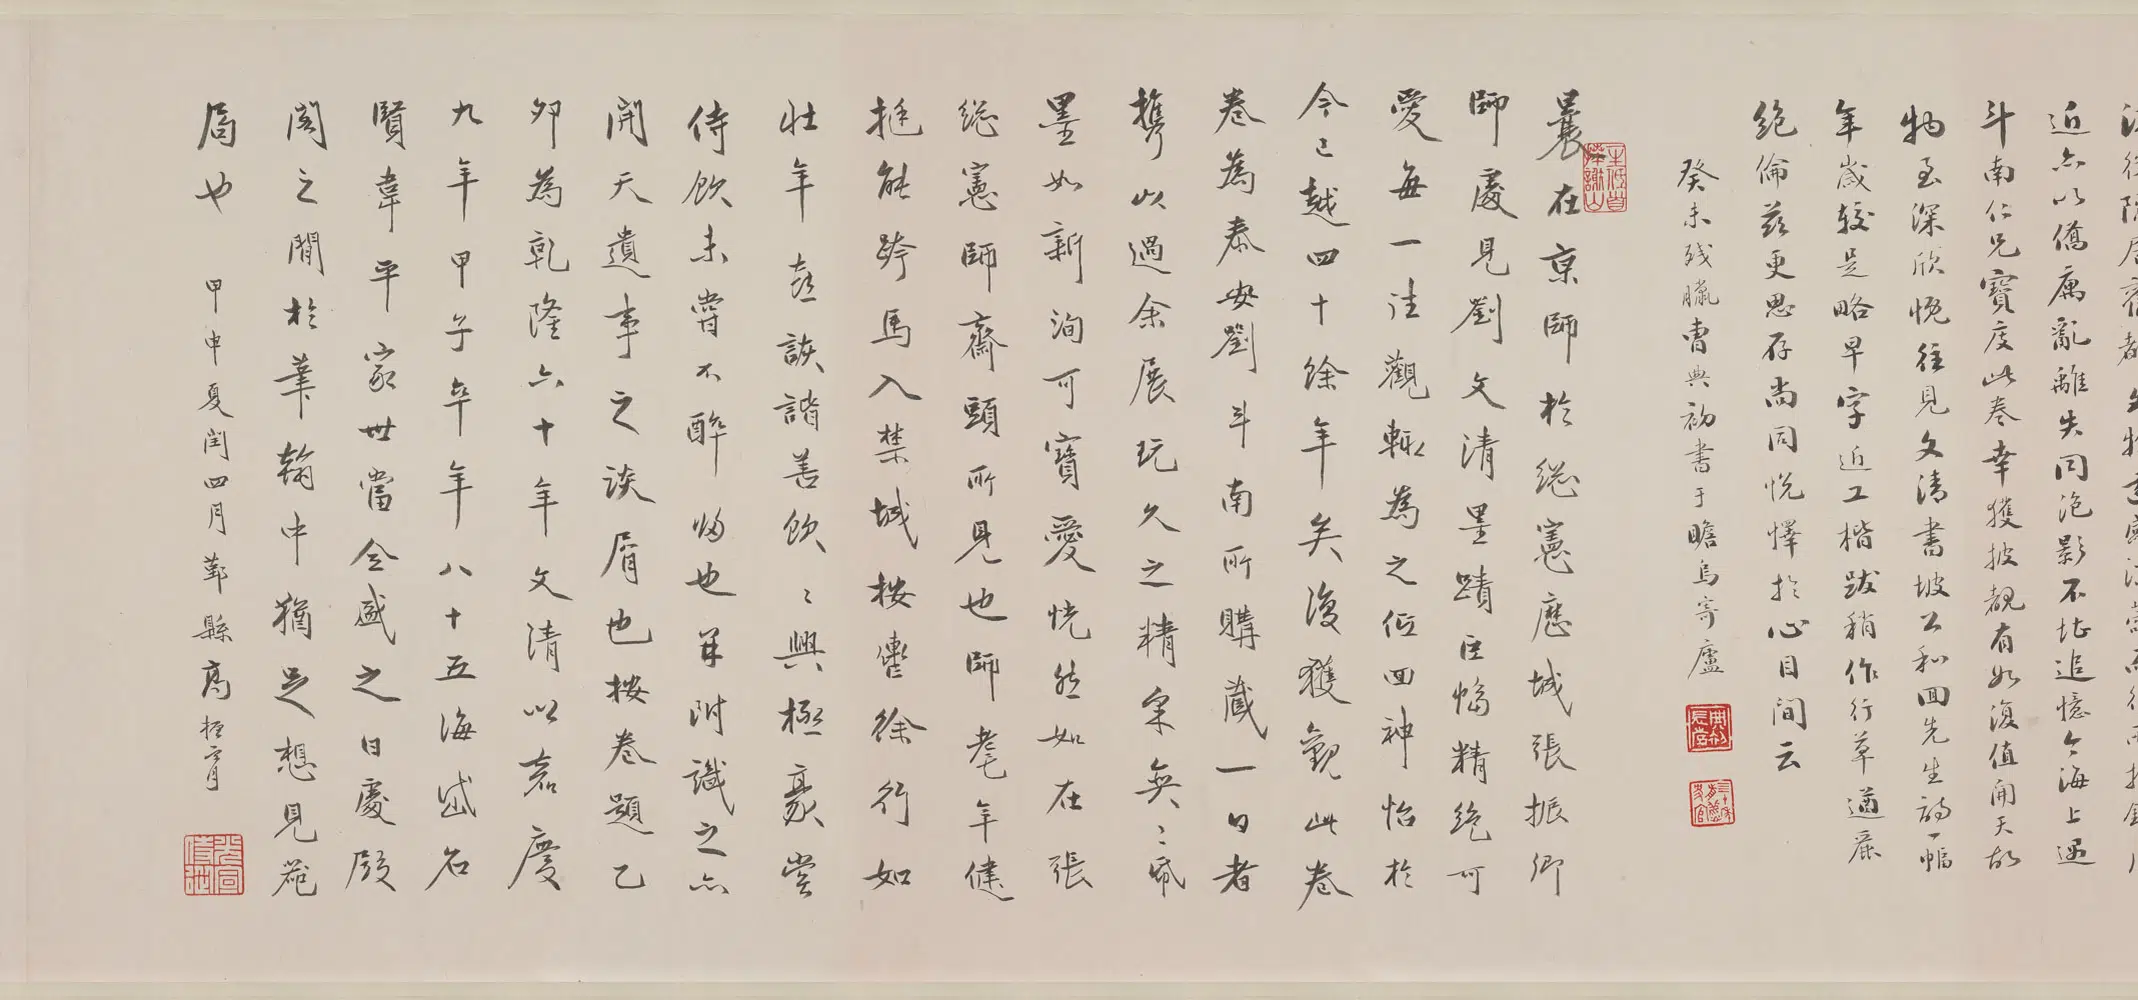 近亦以僑寓亂離失同泡影不堪追憶今海上遇
斗南仁兄寶度此卷幸獲披覩有如復值開天故
物至深欣悦往見文清書坡公和回先生詩一幅
年歲較是略早字近工楷跋稍作行草遒麗
絶倫茲更思存尚同悦懌於心目間云
癸未殘臘曹典初書于瞻烏寄廬
曩在京師於總憲歷城張振卿
師處見劉文清墨蹟巨幅精絶可
愛每一注觀輒為之低回神怡於
今已越四十餘年矣復獲觀此卷
卷為泰安劉斗南所購藏一日者
攜以過余展玩久之精采奕〻紙
墨如新洵可寶愛恍然如在張
總憲師齋頭所見也師耄年健
挺能跨馬入禁城按轡徐行如
壯年喜詼諧善飲〻興極豪嘗
侍飲未嘗不醉歸也并附識之亦
開天遺事之談屑也按卷題乙
卯為乾隆六十年文清以嘉慶
九年甲子卒年八十五海岱名
賢韋平家世當全盛之日處殿
閣之間於筆翰中猶足想見器
局也 甲申夏閏四月鄞縣高振霄